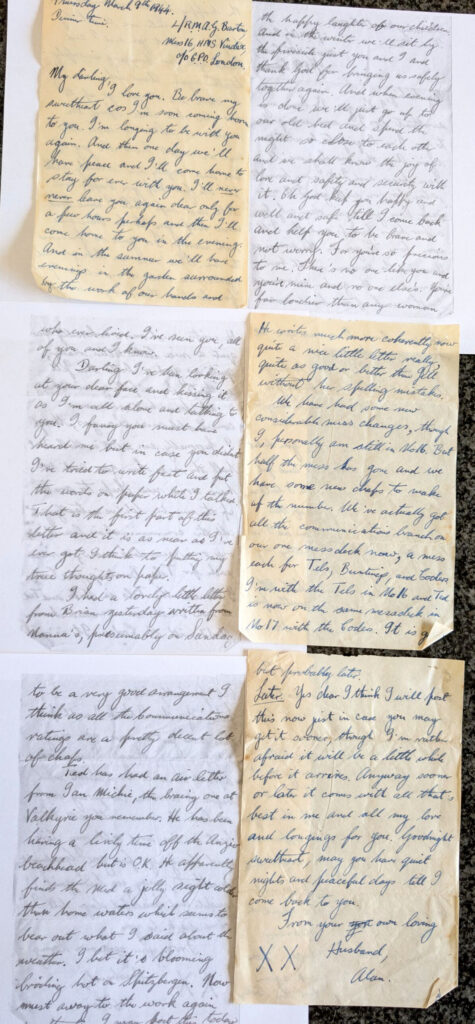 Thursday March 9th 1944.
L/RM. A.G. Burton
Mess 16 HMS Vindex
c/o G.P.O. London.
My darling,
I love you. Be brave my
sweetheart cos I'm soon coming home
to you. I'm longing to be with you
again. And then one day we'll
have peace and I'll come home to
stay for ever with you. I'll never
never leave you again dear only for
a few hours perhaps and then I'll
come home to you in the evening.
And in the summer we'll have
evenings in the garden surrounded
by the work of our hands and
th happy laughter of our children.
And in the winter we'll sit by
the fireside just you and I and
thank God for bringing us safely
together again. And when evening
is done we'll just go up to
our old bed and spend the
night so close to each other
and we shall know the joy of
love and safety and security with
it. Oh God keep you happy and
well and safe till I come back
and help you to be brave and
not worry. For you're so precious
to me. There's no one like you and
you're mine and no one else's. You're
far lovelier than any woman
who ever lived. I've seen you, all
of you and I know.
Darling I've been looking
at your dear face and kissing it
as I'm all alone and talking to
you. I fancy you must have
heard me but in case you didn't
I've tried to write fast and put
the words on paper which I talked.
That is the first part of this
letter and it is as near as I've
ever got I think to putting my
true thoughts on paper.
I had a lovely little letter
from Brian yesterday written from
Nanna's, presumably on Sunday.
He writes much more coherently now
quite a nice little letter really,
quite as good or better than
without her spelling mistakes.
We have had some new
considerable mess changes, though
I, personally am still in No16. But
half the mess has gone and we
have some new chaps to make
up the number. We've actually got
all the communications branch on
our one messdeck now, a mess
each for Tels, Buntings, and Coders.
I'm with the Tels in No16 and Ted
is now on the same messdeck in
No17 with the Codes. It is g
to be a very good arrangement I
think as all the communications
ratings are a pretty decent lot
of chaps.
Ted has had an air letter
from Ian Michie, the boxing one at
Valkyrie you remember. He has been
having a lively time off the Anzio
beachhead but is O.K. He apparently
finds the Med a jolly sight colder
than home waters which seems to
bear out what I said about the
weather. I bet it's blooming
broiling hot on Spitzbergen. Now
must away to the work again
I may post this today
but probably later.
Later. Yes dear I think I will post
this now just in case you may
get it sooner, though I'm rather
afraid it will be a little while
before it arrives. Anyway sooner
or later it comes with all that's
best in me and all my love
and longings for you. Goodnight
sweetheart, may you have quiet
nights and peaceful days till I
come back to you.
From your own loving
Husband,
X X
Alan.